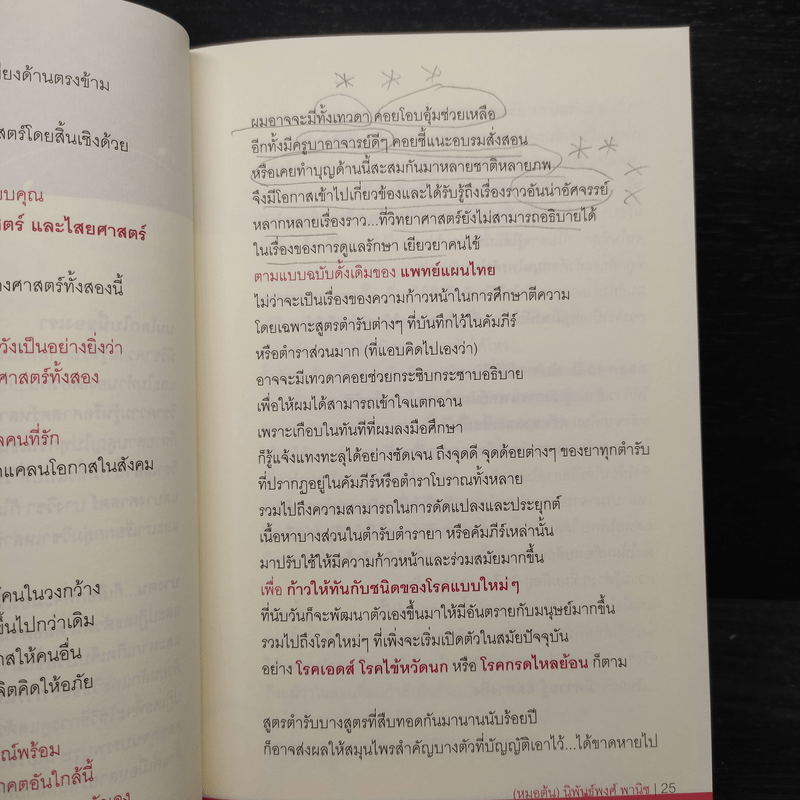 ยงด้านตรงข้าม
สตร์โดยสิ้นเชิงด้วย
บคุณ
ตร์ และไสยศาสตร์
องศาสตร์ทั้งสองนี้
วังเป็นอย่างยิ่งว่า
ศาสตร์ทั้งสอง
คนที่รัก
แคลนโอกาสในสังคม
คนในวงกว้าง
ขึ้นไปกว่าเดิม
สให้คนอื่น
จิตคิดให้อภัย
ณ์พร้อม
าคตอันใกล้นี้
ผมอาจจะมีทั้งเทวดา คอยโอบอุ้มช่วยเหลือ
อีกทั้งมีครูบาอาจารย์ดีๆ คอยชี้แนะอบรมสั่งสอน
หรือเคยทำบุญด้านนี้สะสมกันมาหลายชาติหลายภพ
จึงมีโอกาสเข้าไปเกี่ยวข้องและได้รับรู้ถึงเรื่องราวอันน่าอัศจรรย์
หลากหลายเรื่องราว...ที่วิทยาศาสตร์ยังไม่สามารถอธิบายได้
ในเรื่องของการดูแลรักษา เยียวยาคนไข้
ตามแบบฉบับดั้งเดิมของ แพทย์แผนไทย
ไม่ว่าจะเป็นเรื่องของความก้าวหน้าในการศึกษาตีความ
โดยเฉพาะสูตรตำรับต่างๆ ที่บันทึกไว้ในคัมภีร์
หรือตำราส่วนมาก (ที่แอบคิดไปเองว่า)
อาจจะมีเทวดาคอยช่วยกระซิบกระซาบอธิบาย
เพื่อให้ผมได้สามารถเข้าใจแตกฉาน
เพราะเกือบในทันทีที่ผมลงมือศึกษา
ก็รู้แจ้งแทงทะลุได้อย่างชัดเจน ถึงจุดดี จุดด้อยต่างๆ ของยาทุกตำรับ
ที่ปรากฏอยู่ในคัมภีร์หรือตำราโบราณทั้งหลาย
รวมไปถึงความสามารถในการดัดแปลงและประยุกต์
เนื้อหาบางส่วนในตำรับตำรายา หรือคัมภีร์เหล่านั้น
มาปรับใช้ให้มีความก้าวหน้าและร่วมสมัยมากขึ้น
เพื่อ ก้าวให้ทันกับชนิดของโรคแบบใหม่ๆ
ที่นับวันก็จะพัฒนาตัวเองขึ้นมาให้มีอันตรายกับมนุษย์มากขึ้น
รวมไปถึงโรคใหม่ๆ ที่เพิ่งจะเริ่มเปิดตัวในสมัยปัจจุบัน
อย่าง โรคเอดส์ โรคไข้หวัดนก หรือ โรคกรดไหลย้อน ก็ตาม
สูตรตำรับบางสูตรที่สืบทอดกันมานานนับร้อยปี
ก็อาจส่งผลให้สมุนไพรสำคัญบางตัวที่บัญญัติเอาไว้...ได้ขาดหายไป
(หมอต้น) นิพันธ์พงศ์ พานิช | 25